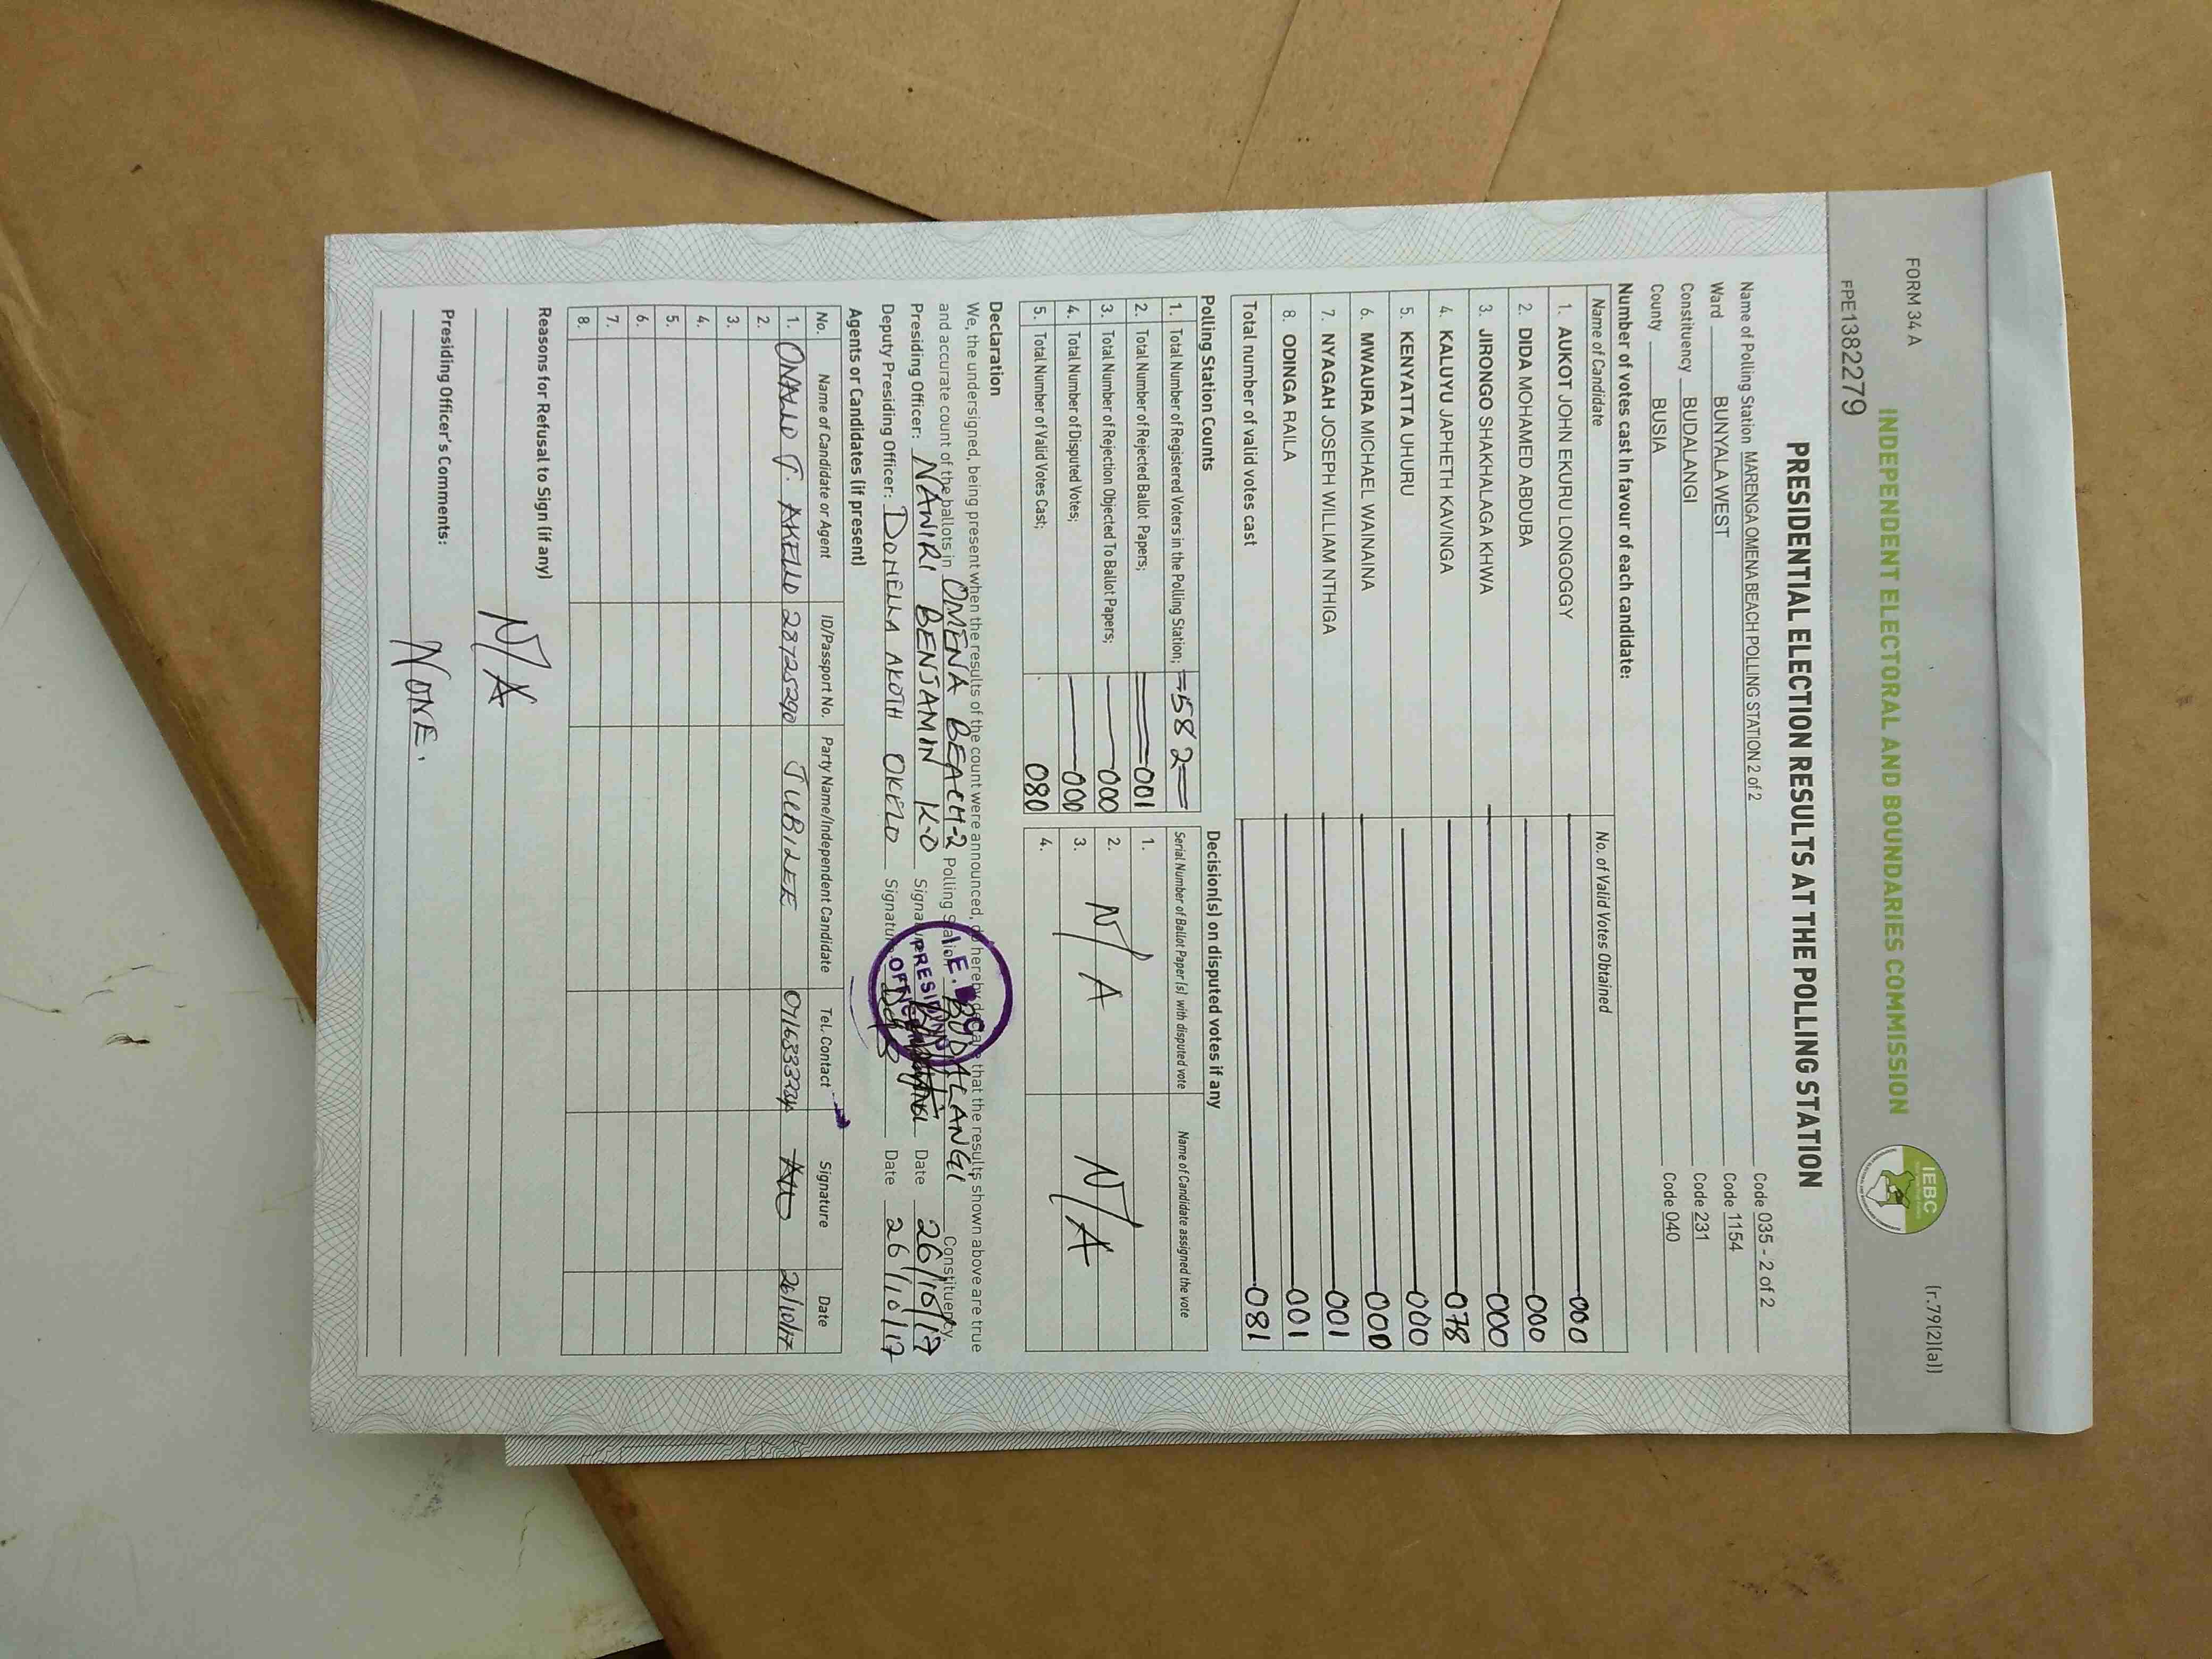 FORM 34 A
(r.79(2)(a))
INDEPENDENT ELECTORAL AND BOUNDARIES COMMISSION
IEBC
FPE1382279
PRESIDENTIAL ELECTION RESULTS AT THE POLLING STATION
Name of Polling Station MARENGA OMENA BEACH POLLING STATION 2 of 2 Code 035 - 2 of 2
Ward BUNYALA WEST Code 1154
Constituency BUDALANGI Code 231
County BUSIA Code 040
Number of votes cast in favour of each candidate:
Name of Candidate No. of Valid Votes Obtained
1. AUKOT JOHN EKURU LONGOGGY 000
2. DIDA MOHAMED ABDUBA 000
3. JIRONGO SHAKHALAGA KHWA 000
4. KALUYU JAPHETH KAVINGA 078
5. KENYATTA UHURU 000
6. MWAURA MICHAEL WAINAINA 000
7. NYAGAH JOSEPH WILLIAM NTHIGA 001
8. ODINGA RAILA 001
Total number of valid votes cast 081
Polling Station Counts Decision(s) on disputed votes if any
1. Total Number of Registered Voters in the Polling Station; =582= Serial Number of Ballot Paper (s) with disputed vote Name of Candidate assigned the vote
2. Total Number of Rejected Ballot Papers; 001 1.
3. Total Number of Rejection Objected To Ballot Papers; 000 2. N/A N/A
4. Total Number of Disputed Votes; 000 3.
5. Total Number of Valid Votes Cast; 080 4.
Declaration
We, the undersigned, being present when the results of the count were announced, do hereby declare that the results shown above are true
and accurate count of the ballots in OMENA BEACH-2 Polling Station BUDALANGI Constituency.
Presiding Officer: NANIRI BENJAMIN K.O Signature Date 26/10/17
Deputy Presiding Officer: DONELLA AKOTH OKELLO Signature Date 26/10/17
I.E.B.C
PRESIDING
OFFICER
Agents or Candidates (if present)
No. Name of Candidate or Agent ID/Passport No. Party Name/Independent Candidate Tel. Contact Signature Date
1. AKELLO 28725290 JUBILEE 26/10/17
2.
3.
4.
5.
6.
7.
8.
Reasons for Refusal to Sign (if any)
N/A
Presiding Officer's Comments:
NONE.